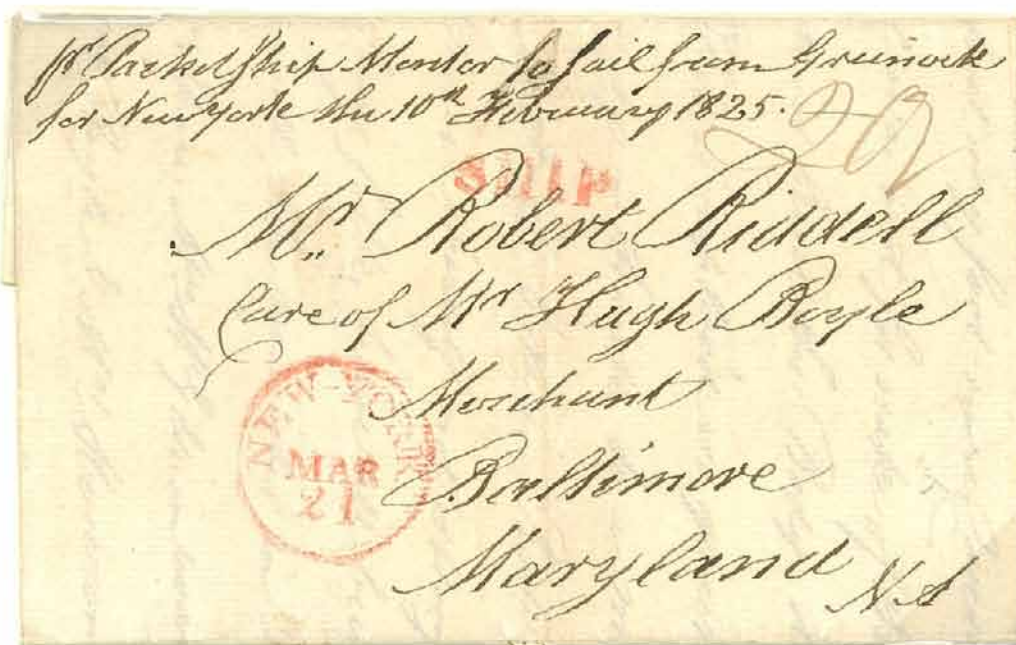 pr Packet Ship Mentor to sail from Greenock
for New York the 10th February 1825.
SHIP
Mr. Robert Riddell
Care of Mr Hugh Boyle
Merchant
Baltimore
Maryland
N A
NEW-YORK
MAR
21